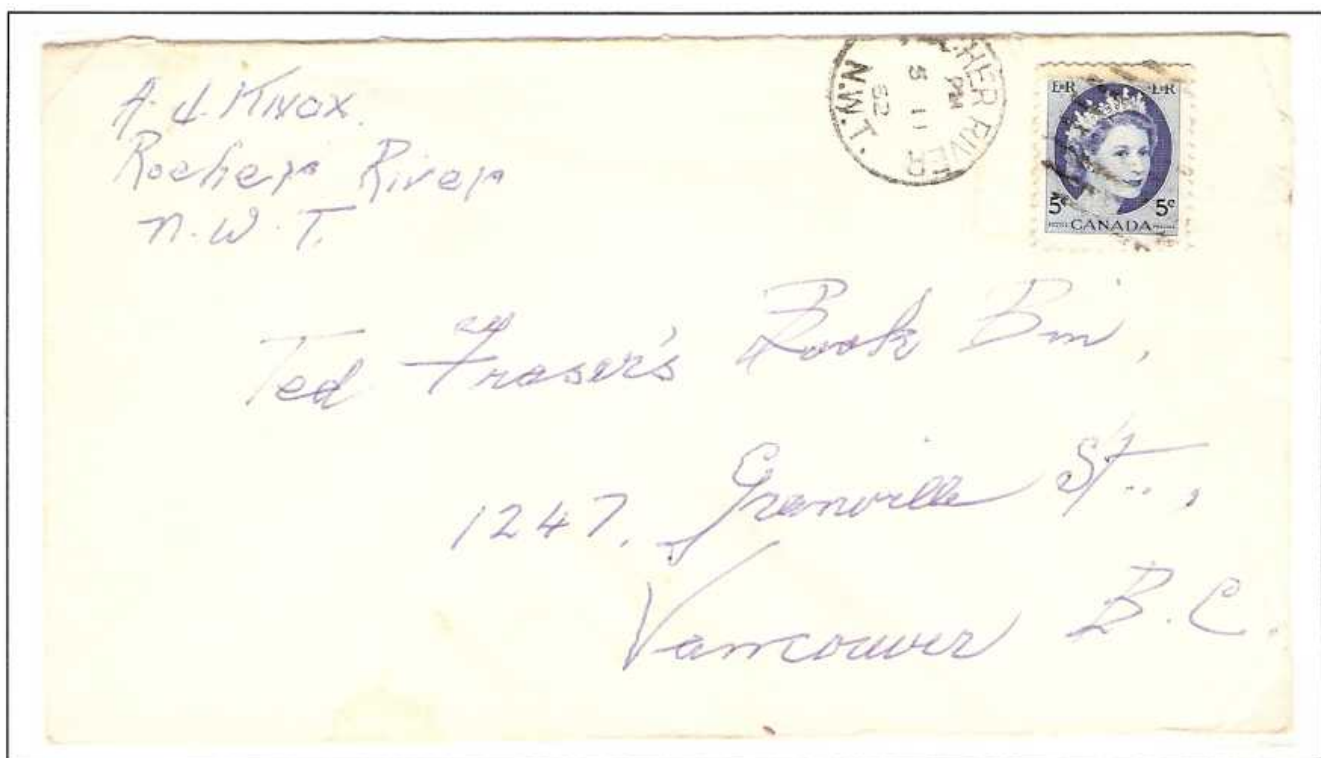 A. J. Knox.
Rocher River
N.W.T.
CHER RIVER
PM
5 11
52
N.W.T.
E R E R
5c 5c
CANADA
Ted Fraser's Book Bin,
1247, Granville St.,
Vancouver B.C.